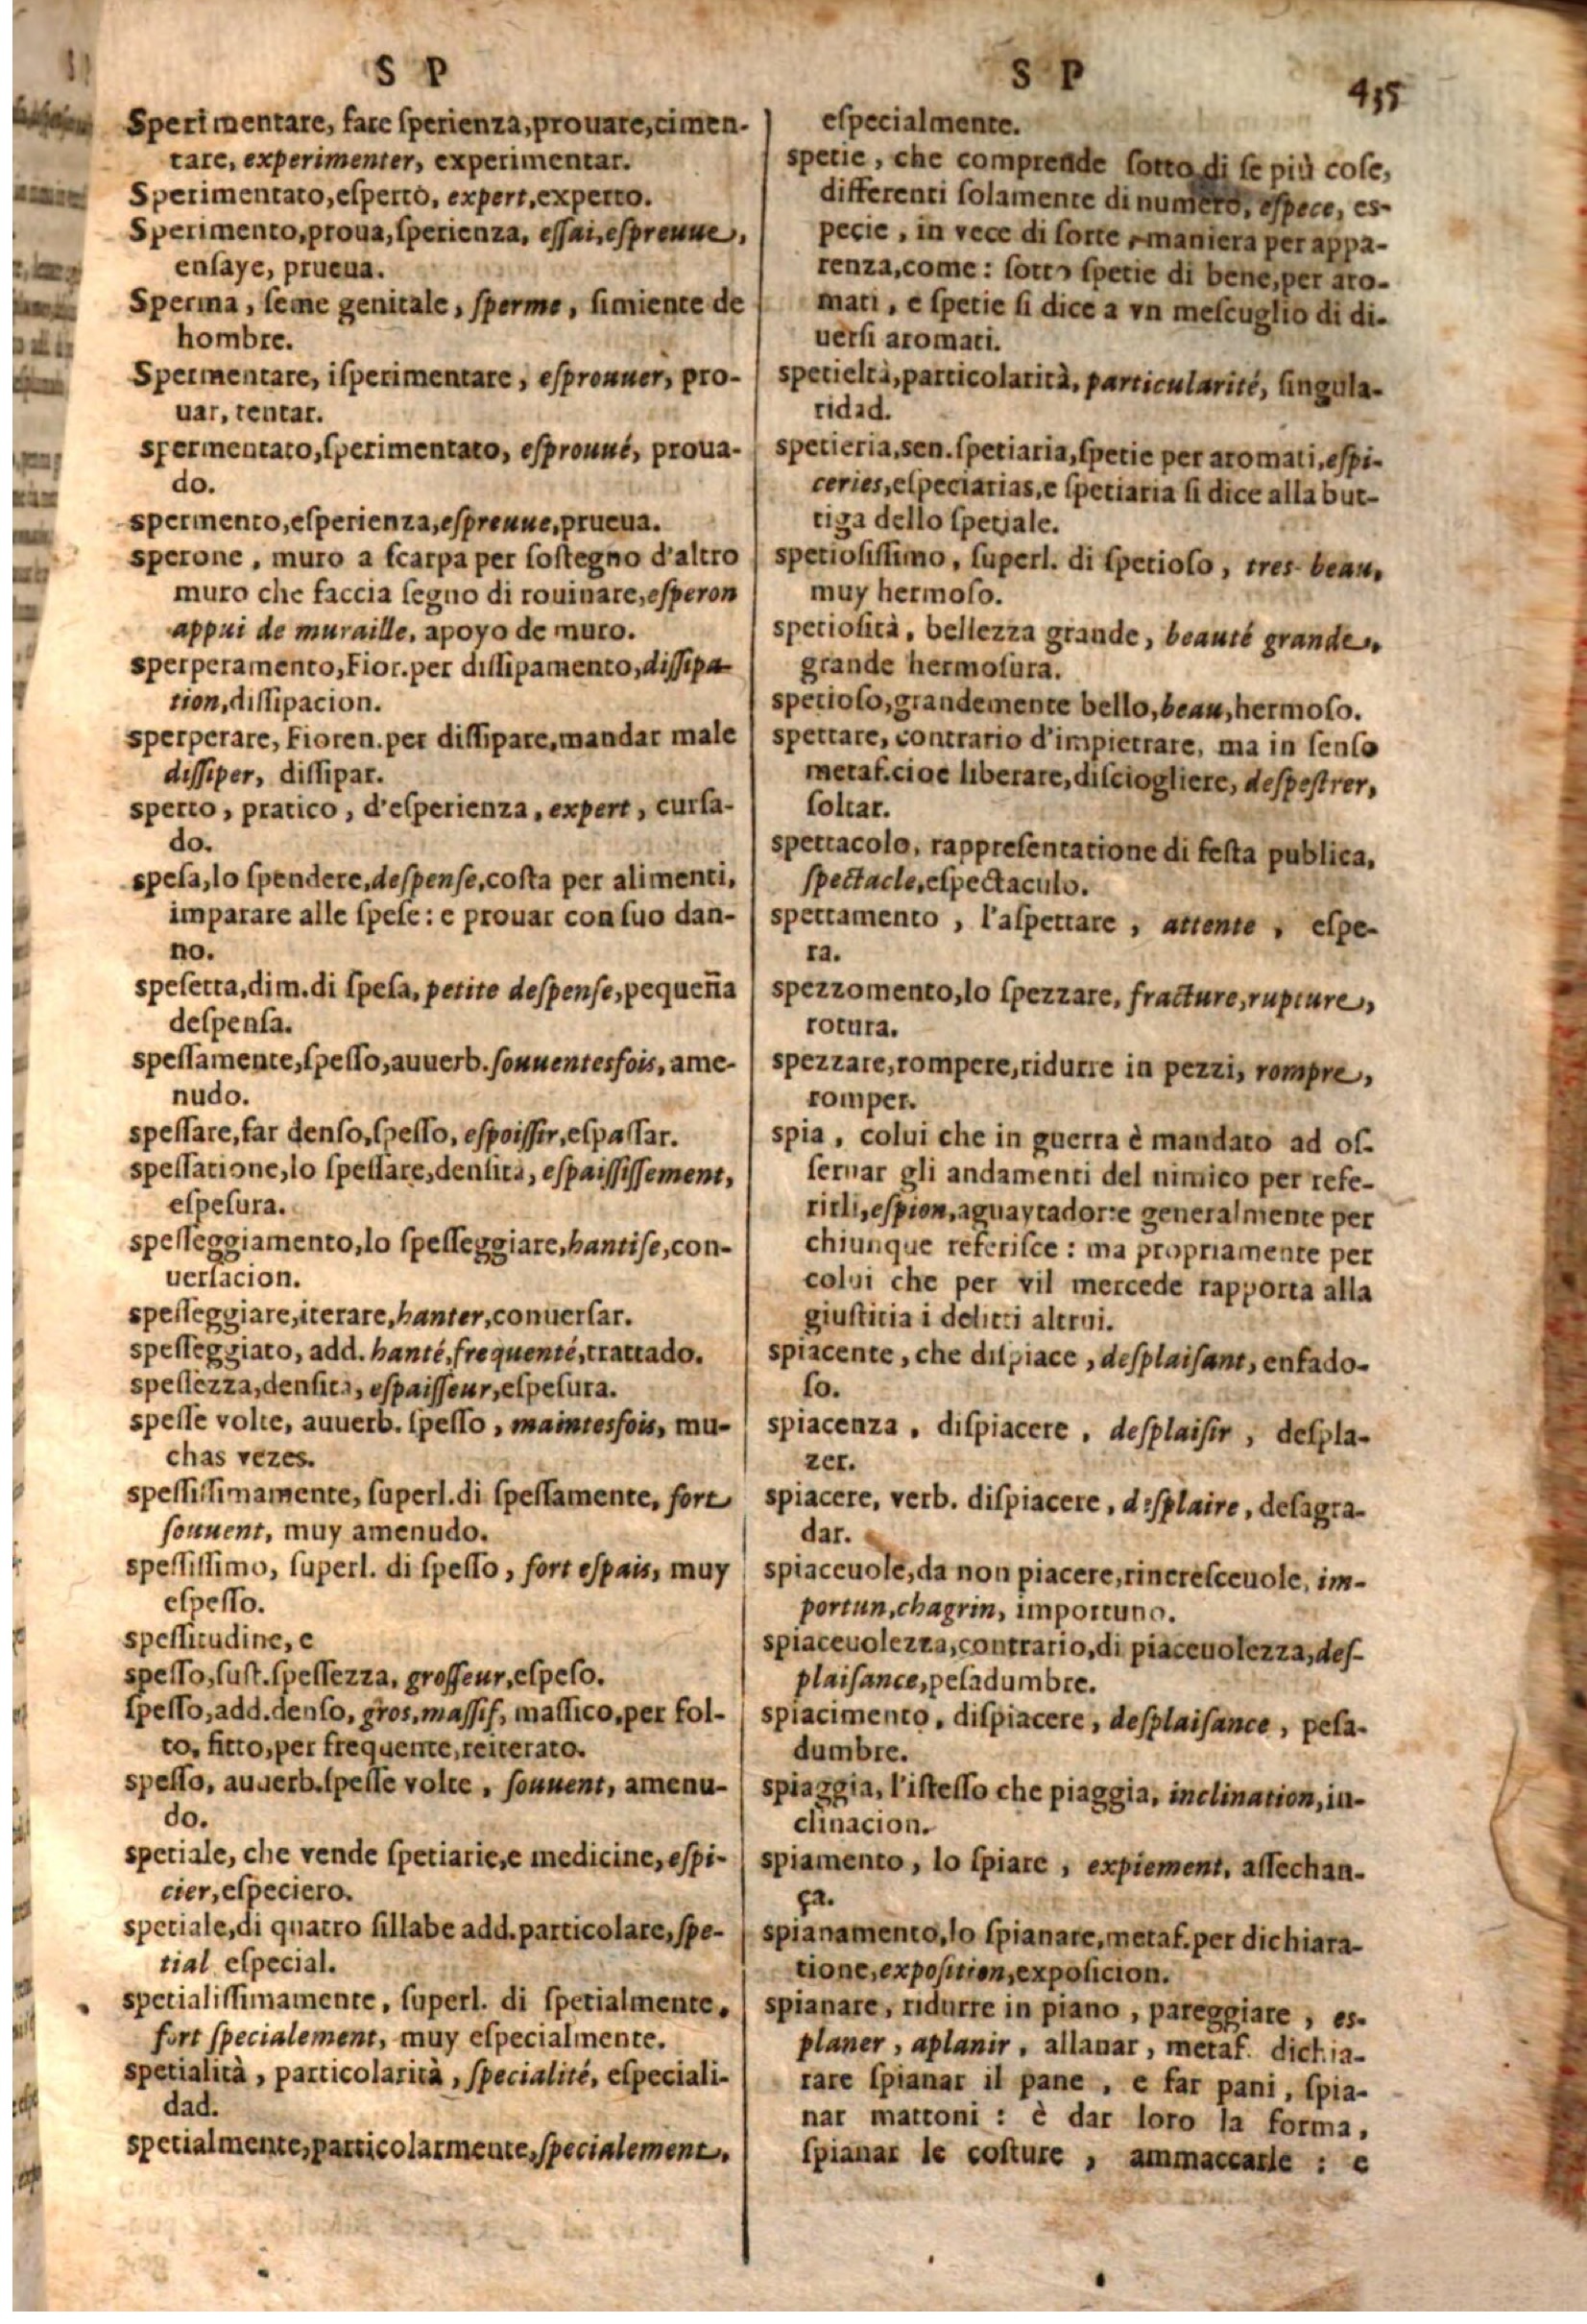 S P
Sperimentare, fare ſperienza,prouare,cimen-
tare, experimenter, experimentar.
Sperimentato,eſperto, expert,experto.
Sperimento,proua,ſperienza, eſſai,eſpreuue,
enſaye, prueua.
Sperma, ſeme genitale, ſperme, ſimiente de
hombre.
Spermentare, iſperimentare, eſprouuer, pro-
uar, tentar.
spermentato,ſperimentato, eſprouué, proua-
do.
spermento,eſperienza,eſpreuue,prueua.
sperone, muro a ſcarpa per ſoſtegno d'altro
muro che faccia ſegno di rouinare,eſperon
appui de muraille, apoyo de muro.
sperperamento,Fior.per diſſipamento,diſſipa-
tion,diſſipacion.
sperperare, Fioren.per diſſipare,mandar male
diſſiper, diſſipar.
sperto, pratico, d'eſperienza, expert, curſa-
do.
speſa,lo ſpendere,deſpenſe,coſta per alimenti,
imparare alle ſpeſe: e prouar con ſuo dan-
no.
speſetta,dim.di ſpeſa, petite deſpenſe,pequeña
deſpenſa.
speſſamente,ſpeſſo,auuerb.ſouuentesfois, ame-
nudo.
speſſare,far denſo,ſpeſſo, eſpoiſſir,eſpaſſar.
speſſatione,lo ſpeſſare,denſità, eſpaiſſiſſement,
eſpeſura.
speſſeggiamento,lo ſpeſſeggiare,hantiſe,con-
uerſacion.
speſſeggiare,iterare,hanter,conuerſar.
speſſeggiato, add. hanté,frequenté,trattado.
speſſezza,denſità, eſpaiſſeur,eſpeſura.
speſſe volte, auuerb. ſpeſſo, maintesfois, mu-
chas vezes.
speſſiſſimamente, ſuperl.di ſpeſſamente, fort
ſouuent, muy amenudo.
speſſiſſimo, ſuperl. di ſpeſſo, fort eſpais, muy
eſpeſſo.
speſſitudine, e
speſſo,ſuſt.ſpeſſezza, groſſeur,eſpeſo.
ſpeſſo,add.denſo, gros,maſſif, maſſico,per fol-
to, fitto,per frequente,reiterato.
speſſo, auuerb.ſpeſſe volte, ſouuent, amenu-
do.
spetiale, che vende ſpetiarie,e medicine, eſpi-
cier,eſpeciero.
spetiale,di quatro ſillabe add.particolare,ſpe-
tial eſpecial.
spetialiſſimamente, ſuperl. di ſpetialmente,
fort ſpecialement, muy eſpecialmente.
spetialità, particolarità, ſpecialité, eſpeciali-
dad.
spetialmente,particolarmente,ſpecialement,
S P
435
eſpecialmente.
spetie, che comprende ſotto di ſe più coſe,
differenti ſolamente di numero, eſpece, es-
pecie, in vece di ſorte, maniera per appa-
renza,come: ſotto ſpetie di bene,per aro-
mati, e ſpetie ſi dice a vn meſcuglio di di-
uerſi aromati.
spetieltà,particolarità, particularité, ſingula-
ridad.
spetieria,sen.ſpetiaria,ſpetie per aromati,eſpi-
ceries,eſpeciarias,e ſpetiaria ſi dice alla but-
tiga dello ſpetiale.
spetioſiſſimo, ſuperl. di ſpetioſo, tres beau,
muy hermoſo.
spetioſità, bellezza grande, beauté grande,
grande hermoſura.
spetioſo,grandemente bello,beau,hermoſo.
spettare, contrario d'impietrare, ma in ſenſo
metaf.cioe liberare,diſciogliere, deſpeſtrer,
ſoltar.
spettacolo, rappreſentatione di feſta publica,
ſpectacle,eſpectaculo.
spettamento, l'aſpettare, attente, eſpe-
ra.
spezzomento,lo ſpezzare, fracture,rupture,
rotura.
spezzare,rompere,ridurre in pezzi, rompre,
romper.
spia, colui che in guerra è mandato ad oſ-
ſeruar gli andamenti del nimico per refe-
rirli,eſpion,aguaytador:e generalmente per
chiunque referiſce: ma propriamente per
colui che per vil mercede rapporta alla
giuſtitia i delitti altrui.
spiacente, che diſpiace, deſplaiſant, enfado-
ſo.
spiacenza, diſpiacere, deſplaiſir, deſpla-
zer.
spiacere, verb. diſpiacere, deſplaire, deſagra-
dar.
spiaceuole,da non piacere,rincreſceuole, im-
portun,chagrin, importuno.
spiaceuolezza,contrario,di piaceuolezza,deſ-
plaiſance,peſadumbre.
spiacimento, diſpiacere, deſplaiſance, peſa-
dumbre.
spiaggia, l'iſteſſo che piaggia, inclination,in-
clinacion.
spiamento, lo ſpiare, expiement, aſſechan-
ça.
spianamento,lo ſpianare,metaf.per dichiara-
tione,expoſition,expoſicion.
spianare, ridurre in piano, pareggiare, es-
planer, aplanir, allanar, metaf. dichia-
rare ſpianar il pane, e far pani, ſpia-
nar mattoni: è dar loro la forma,
ſpianar le coſture, ammaccarle: e